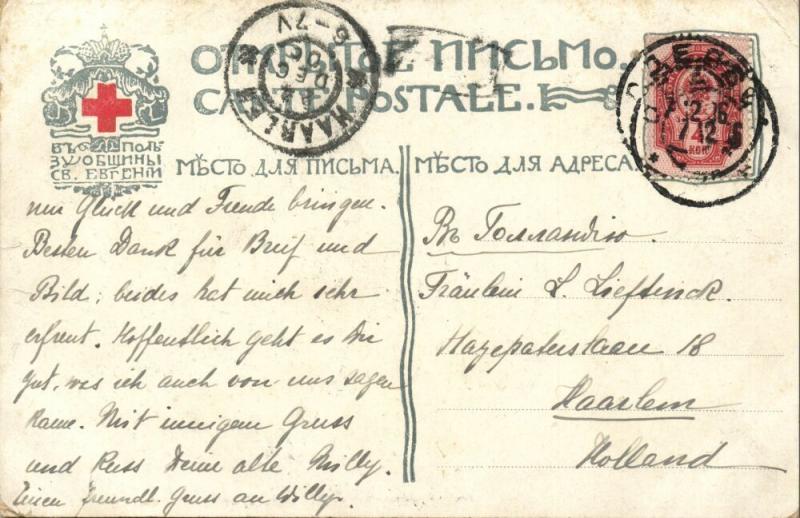 ОТКРЫТОЕ ПИСЬМО.
CARTE POSTALE.
ВЪ ПОЛЬ
ЗУ ОБЩИНЫ
СВ. ЕВГЕНІИ
HAARLEM
6-7V
DEC
МѢСТО ДЛЯ ПИСЬМА.
МѢСТО ДЛЯ АДРЕСА.
4
КОП
nur Glück und Freude bringen.
Besten Dank für Brief und
Bild; beides hat mich sehr
erfreut. Hoffentlich geht es Dir
gut, was ich auch von uns sagen
kann. Mit innigem Gruss
und Kuss Deine alte Milly.
Einen freundl. Gruss an Willy.
Въ Голландію.
Fräulein L. Lieftinck.
Hazepaterslaan 18
Haarlem
Holland